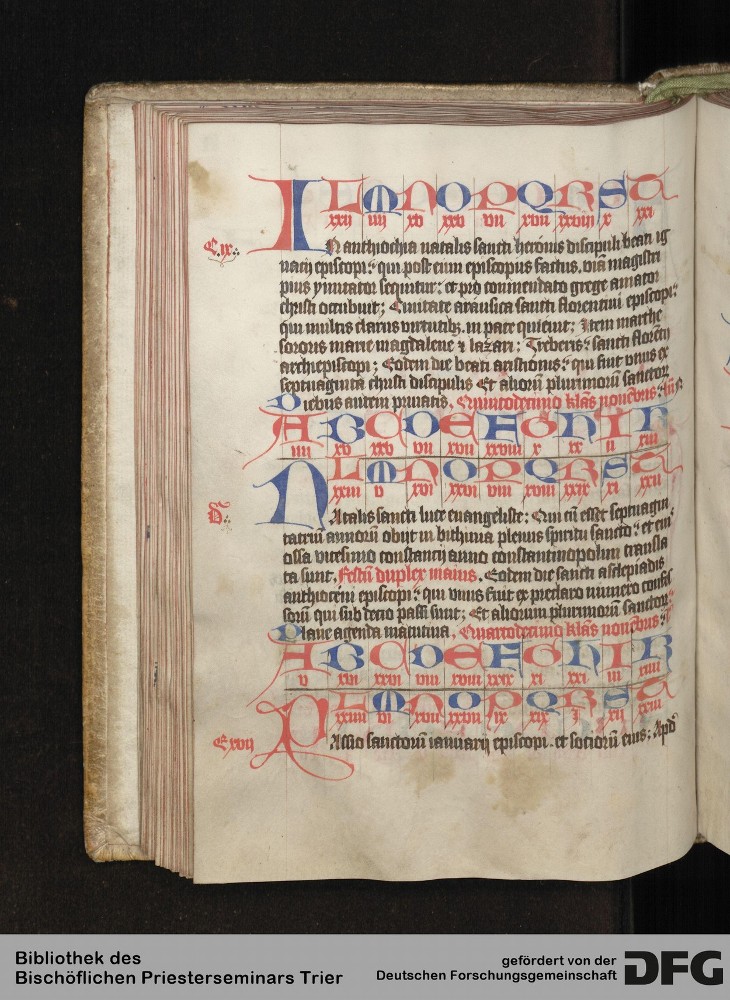 L M N O P Q R S T
xxij iiij xv xxv vij xvij xxviij x xxi
C.ix.
IN anthiochia natalis sancti heronis discipuli beati ig
nacij episcopi: qui post eum episcopus factus. viā magistri
pius ymitator sequitur: et pro cōmendato grege amator
christi occubuit; Ciuitate arausica sancti florentini episcopi:
qui multis clarus virtutibꝫ. in pace quieuit; Item marthe
sororis marie magdalene ⁊ lazari: Treberis: sancti florētij
archiepiscopi; Eodem die beati aristionis: qui fuit vnus ex
septuaginta christi discipulis Et aliorū plurimorū sanctorꝝ
Diebus autem priuatis. Quintodecimo kl̄as nouēbris:
A B C D E F G H I K
iiij xv xxv vij xvij xxviij x xx ij xiij
L M N O P Q R S T
xxiij v xvi xxvi viij xviij xxix xi xxij
D.
NAtalis sancti luce euangeliste: Qui cū esset septuagin
tatriū annorū obijt in bithinia plenus spiritu sancto: et eiꝰ
ossa vicesimo constancij anno constantinopolim transla
ta sunt. Festū duplex maius. Eodem die sancti asclepiadis
anthioceni episcopi: qui vnus fuit ex preclaro numero confes
sorū qui sub decio passi sunt; Et aliorum plurimorū sanctorꝝ
Plane agenda matutina. Quartodecimo kl̄as nouēbris:
A B C D E F G H I K
v xvi xxvi viij xviij xxix xi xxi iij xiiij
L M N O P Q R S T
xxiiij vi xvij xxvij ix xix i xij xxiij
E xvij
PAssio sanctorū ianuarij episcopi. et sociorū eius; Apd̄
Bibliothek des
Bischöflichen Priesterseminars Trier
gefördert von der
Deutschen Forschungsgemeinschaft
DFG